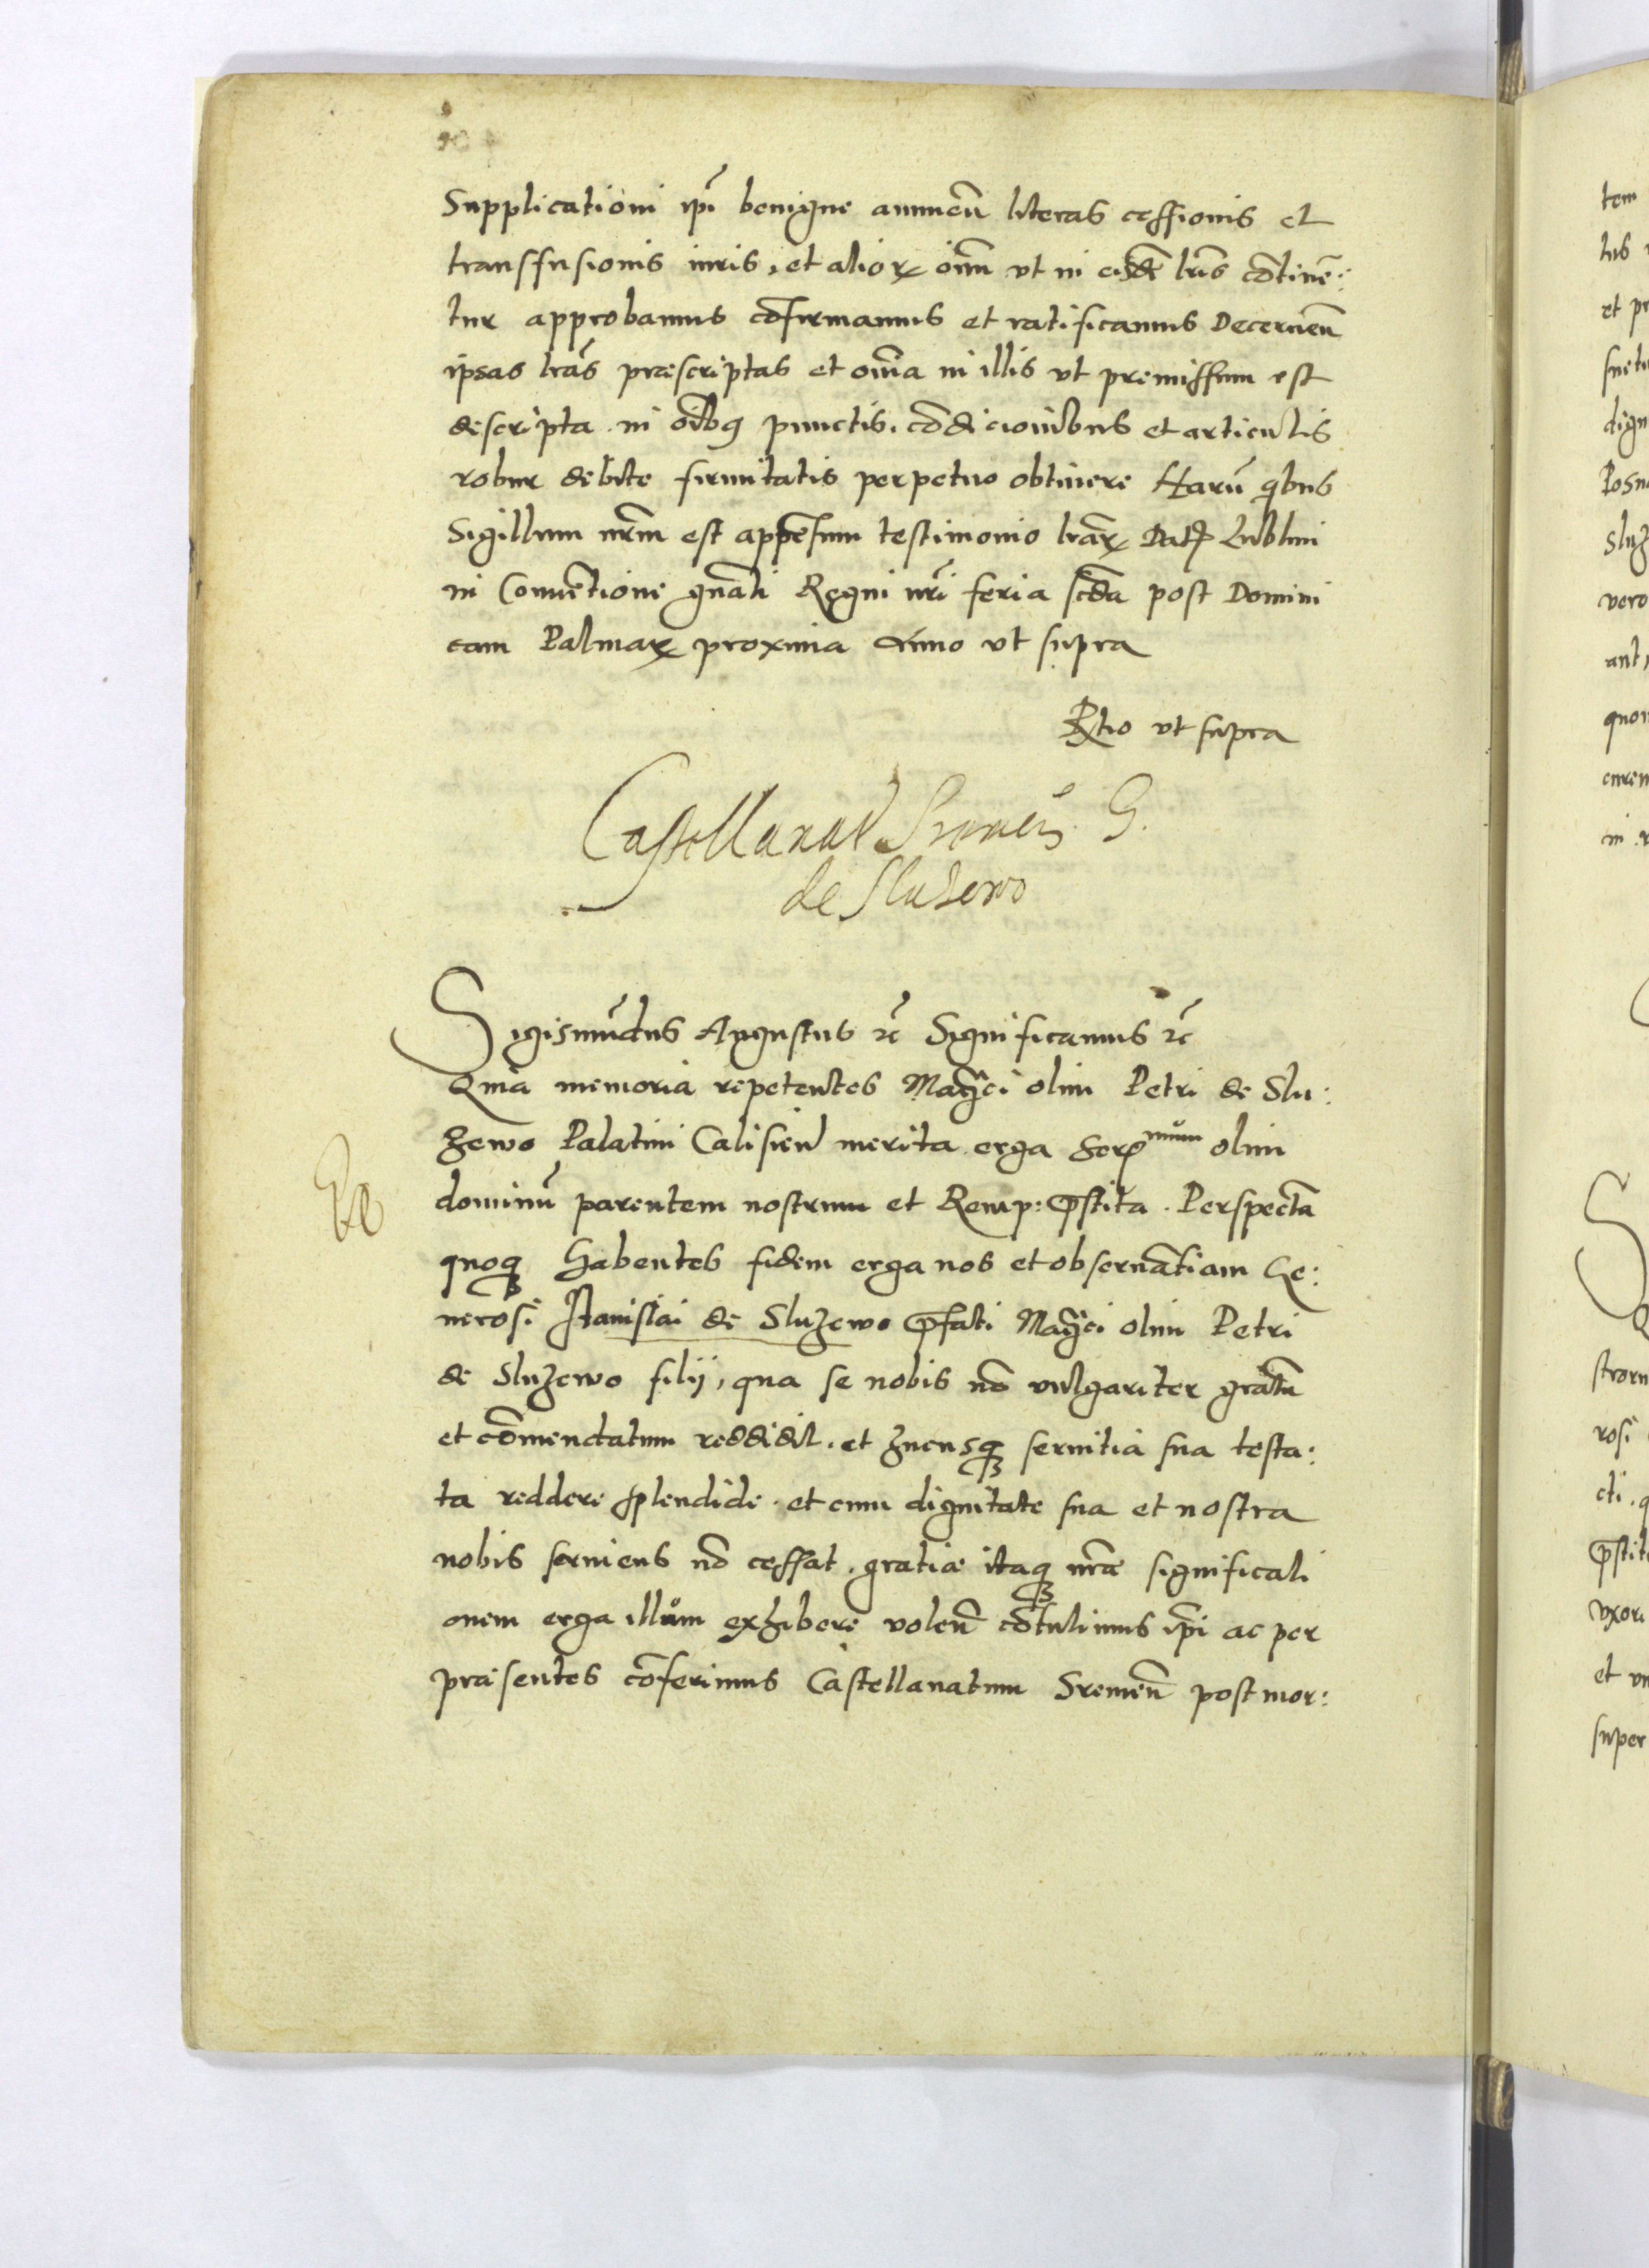 Supplicationi ipī benigne annuen̄ literas cessionis et
transfusionis iuris, et alioꝝ oīm̄ ut in eisdē lrīs cōtinē:
tur approbamus cōfirmamus et ratificamus Decernen̄
ipsas lrās præscriptas et oīnia in illis ut premissum est
descripta in oībꝰ punctis, cōdicionibus et articulis
robur debite firmitatis perpetuo obtinere Harū qbus
Sigillum nrm̄ est appēsum testimonio lrāꝝ Datꝭ Lublini
in Conuentione gnāli Regni nrī feria scdā post Domini
cam Palmaꝝ proxima Anno ut supra
Rtio ut supra
Castellanat Sremeñ. G.
de Sluzewo
Sigismūdus Augustus ꝛc̄ Significamus ꝛc̄
Quia memoria repetentes Magci olim Petri de Slu:
zewo Palatini Calisien̄ merita erga Serꝭmum olim
dominū parentem nostrum et Remp: p̄stita. Perspecta
quoqꝫ habentes fidem erga nos et obseruātiam Ge:
nerosi Stanislai de Sluzewo p̄fati Magci olim Petri
de Sluzewo filij, qua se nobis nō vulgariter gratū
et cōmendatum reddidit, et hucusqꝫ seruitia sua testa:
ta reddere splendide et cum dignitate sua et nostra
nobis seruiens nō cessat, gratiæ itaqꝫ nrǣ significati
onem erga illum exhibere volen̄ cōtulimus ipī ac per
præsentes cōferimus Castellanatum Sremen̄ post mor: